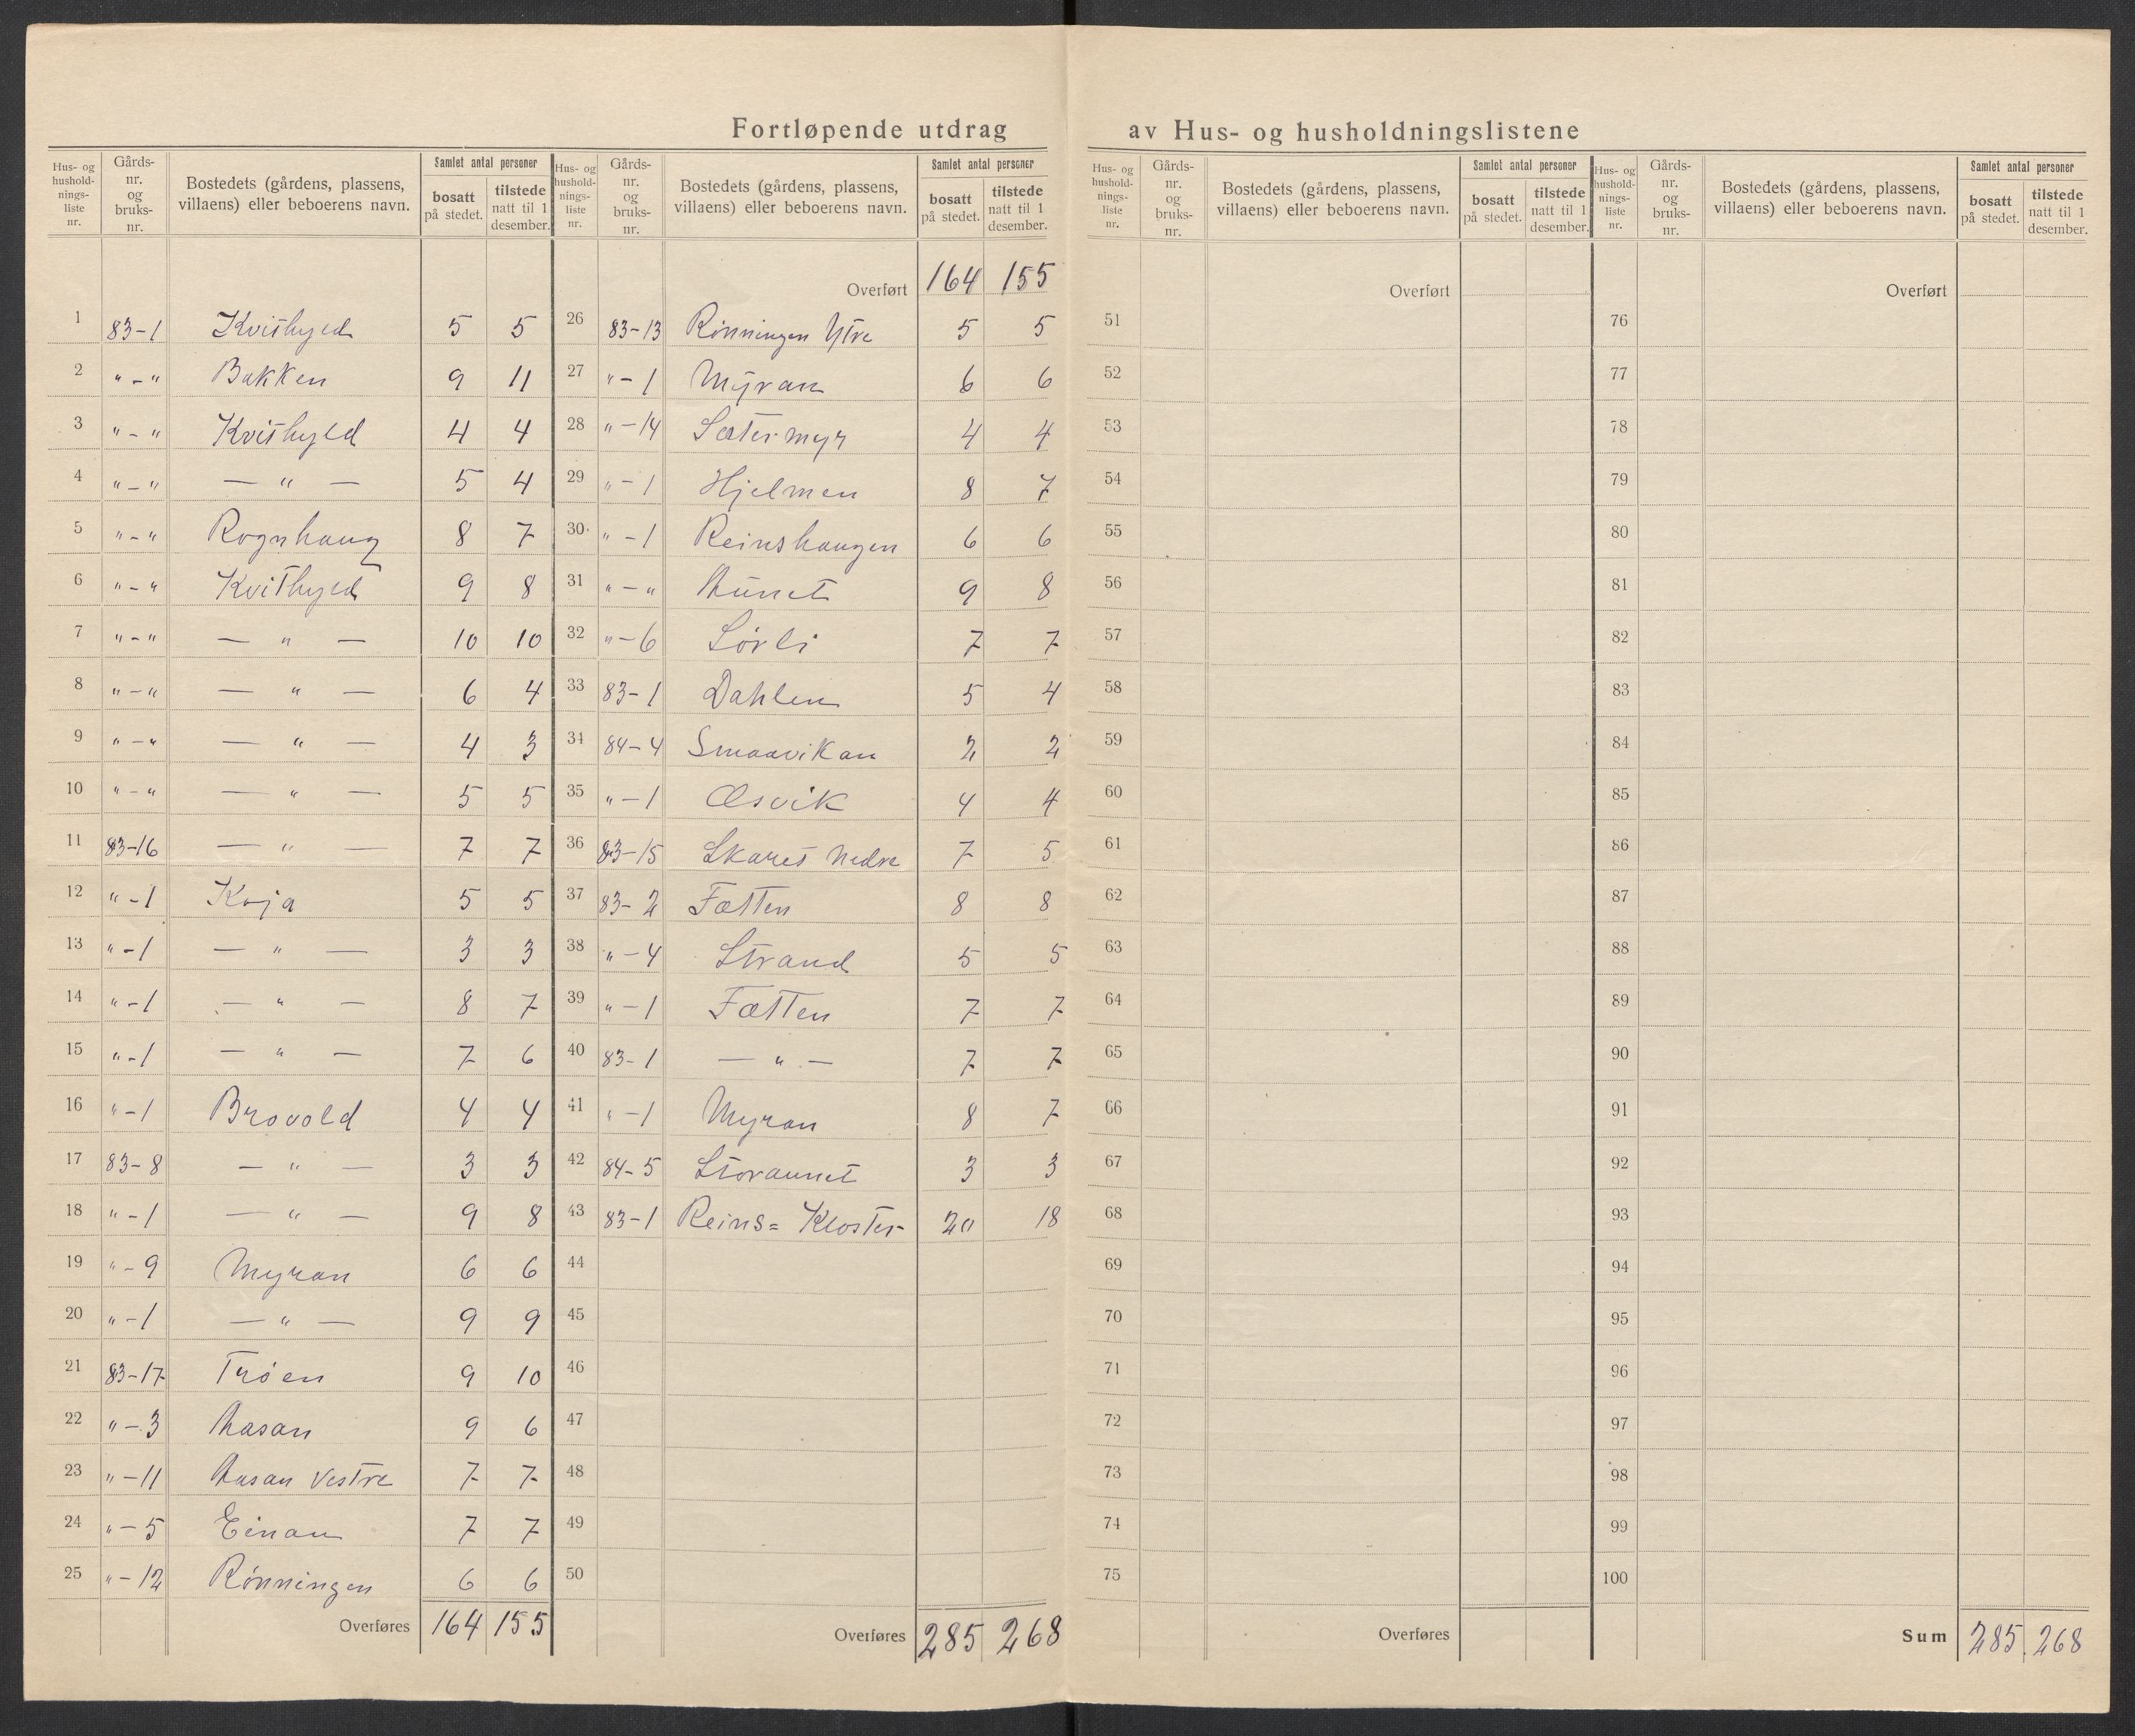 Fortløpende utdrag av Hus- og husholdningslistene
Hus- og husholdnings- liste nr. | Gårds- nr. og bruks- nr. | Bostedets (gårdens, plassens, villaens) eller beboerens navn. | Samlet antal personer | bosatt på stedet. | tilstede natt til 1 desember.
1 83-1 Kvithyld 5 5
2 "-" Bakken 9 11
3 "-" Kvithyld 4 4
4 "-" — " — 5 4
5 "-" Rognhaug 8 7
6 "-" Kvithyld 9 8
7 "-" — " — 10 10
8 "-" — " — 6 4
9 "-" — " — 4 3
10 "-" — " — 5 5
11 83-16 — " — 7 7
12 "-1 Koja 5 5
13 "-1 — " — 3 3
14 "-1 — " — 8 7
15 "-1 — " — 7 6
16 "-1 Brovold 4 4
17 83-8 — " — 3 3
18 "-1 — " — 9 8
19 "-9 Myran 6 6
20 "-1 — " — 9 9
21 83-17 Trøen 9 10
22 "-3 Aasan 9 6
23 "-11 Aasan Vestre 7 7
24 "-5 Einan 7 7
25 "-12 Rønningen 6 6
Overføres 164 155
Hus- og husholdnings- liste nr. | Gårds- nr. og bruks- nr. | Bostedets (gårdens, plassens, villaens) eller beboerens navn. | Samlet antal personer | bosatt på stedet. | tilstede natt til 1 desember.
Overført 164 155
26 83-13 Rønningen Ytre 5 5
27 "-1 Myran 6 6
28 "-14 Sætermyr 4 4
29 "-1 Hjelmen 8 7
30 "-1 Reinshaugen 6 6
31 "-" Aunet 9 8
32 "-6 Sørli 7 7
33 83-1 Dahlen 5 4
34 84-4 Smaavikan 2 2
35 "-1 Øsvik 4 4
36 83-15 Skaret Nedre 7 5
37 83-2 Fætten 8 8
38 "-4 Strand 5 5
39 "-1 Fætten 7 7
40 83-1 — " — 7 7
41 "-1 Myran 8 7
42 84-5 Storaunet 3 3
43 83-1 Reins= Kloster 20 18
44
45
46
47
48
49
50
Overføres 285 268
Hus- og husholdnings- liste nr. | Gårds- nr. og bruks- nr. | Bostedets (gårdens, plassens, villaens) eller beboerens navn. | Samlet antal personer | bosatt på stedet. | tilstede natt til 1 desember.
Overført
51
52
53
54
55
56
57
58
59
60
61
62
63
64
65
66
67
68
69
70
71
72
73
74
75
Overføres
Hus- og husholdnings- liste nr. | Gårds- nr. og bruks- nr. | Bostedets (gårdens, plassens, villaens) eller beboerens navn. | Samlet antal personer | bosatt på stedet. | tilstede natt til 1 desember.
Overført
76
77
78
79
80
81
82
83
84
85
86
87
88
89
90
91
92
93
94
95
96
97
98
99
100
Sum 285 268